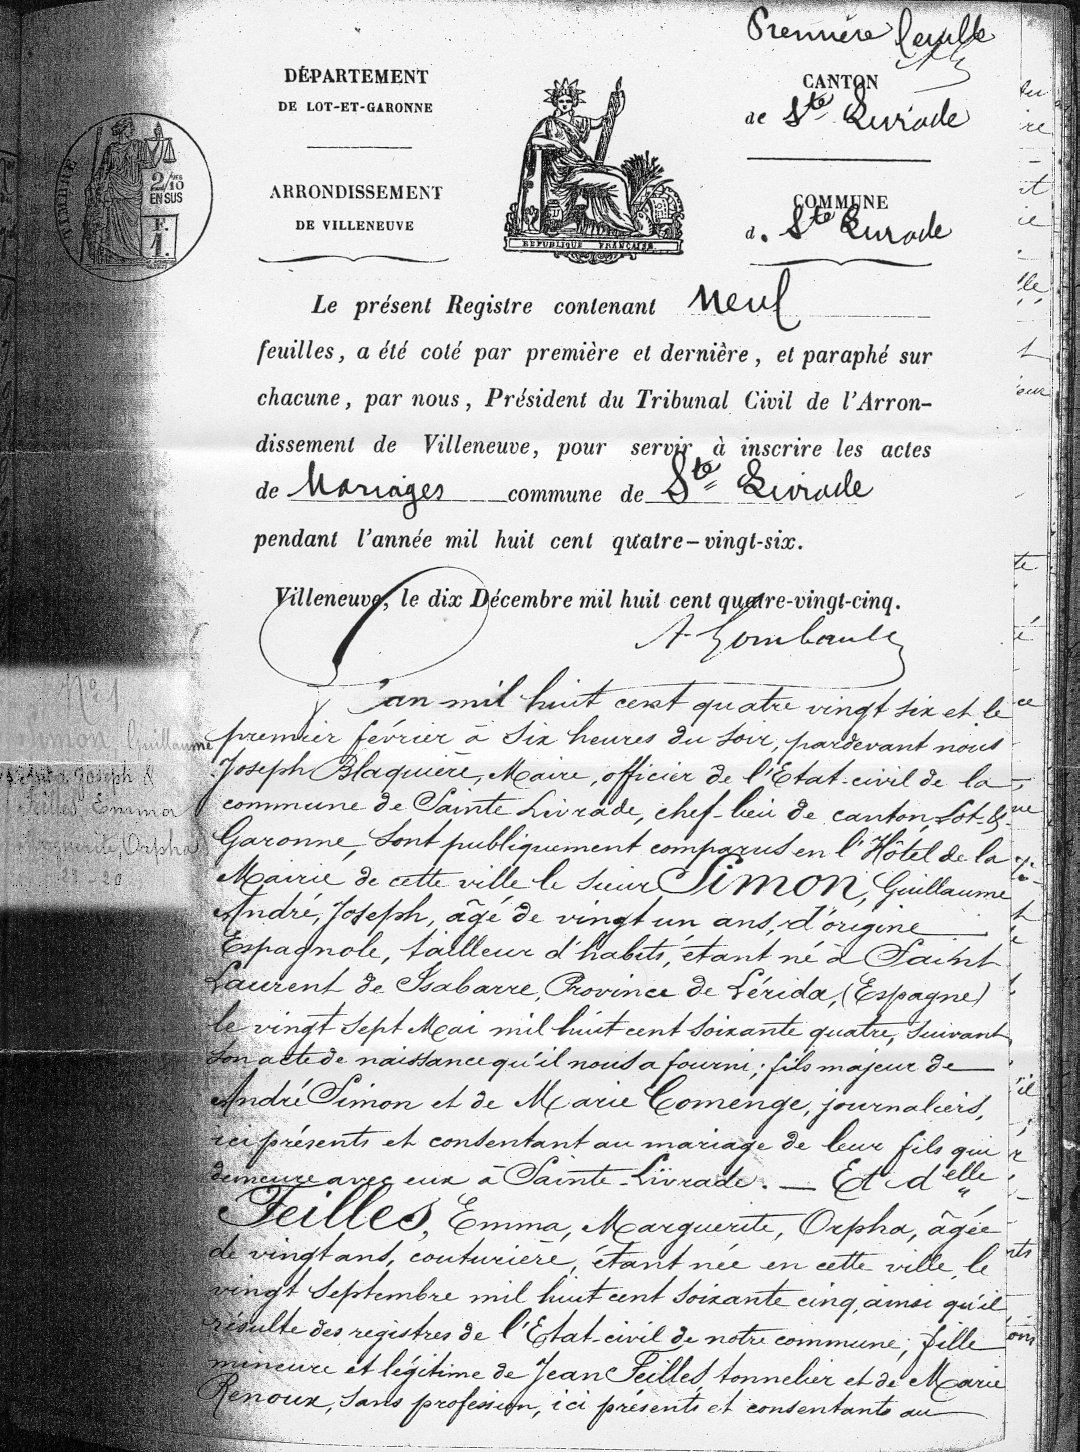 Première feuille
DÉPARTEMENT
DE LOT-ET-GARONNE
ARRONDISSEMENT
DE VILLENEUVE
TIMBRE
2/10
EN SUS
F.
1.
RÉPUBLIQUE FRANÇAISE
CANTON
de Ste Livrade
COMMUNE
d. Ste Livrade
Le présent Registre contenant Neuf
feuilles, a été coté par première et dernière, et paraphé sur
chacune, par nous, Président du Tribunal Civil de l'Arron-
dissement de Villeneuve, pour servir à inscrire les actes
de Mariages commune de Ste Livrade
pendant l'année mil huit cent quatre-vingt-six.
Villeneuve, le dix Décembre mil huit cent quatre-vingt-cinq.
N° 1
Simon, Guillaume
André Joseph &
Feilles, Emma
Marguerite, Orpha
L'an mil huit cent quatre vingt six et le
premier février à six heures du soir, pardevant nous
Joseph Blaquière, Maire, officier de l'Etat-civil de la
commune de Sainte Livrade, chef-lieu de canton, Lot-&-
Garonne, sont publiquement comparus en l'Hôtel de la
Mairie de cette ville le sieur Simon, Guillaume
André, Joseph, âgé de vingt un ans, d'origine
Espagnole, tailleur d'habits, étant né à Saint
Laurent de Isabarre, Province de Lérida, (Espagne)
le vingt sept Mai mil huit cent soixante quatre, suivant
son acte de naissance qu'il nous a fourni; fils majeur de
André Simon et de Marie Comenge, journaliers,
ici présents et consentant au mariage de leur fils qui
demeure avec eux à Sainte-Livrade. — Et d'elle
Feilles, Emma, Marguerite, Orpha, âgée
de vingt ans, couturière, étant née en cette ville, le
vingt septembre mil huit cent soixante cinq, ainsi qu'il
résulte des registres de l'Etat-civil de notre commune; fille
mineure et légitime de Jean Feilles tonnelier et de Marie
Renoux, sans profession, ici présents et consentants au